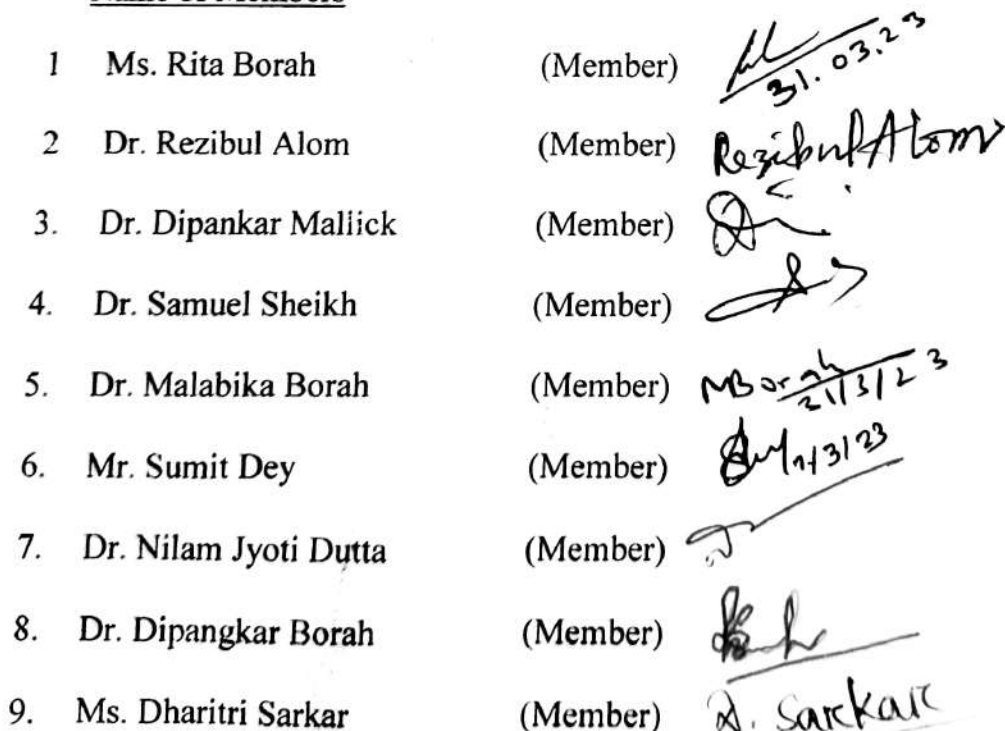 Name of Members
1 Ms. Rita Borah (Member) 31.03.23
2 Dr. Rezibul Alom (Member) Rezibul Alom
3. Dr. Dipankar Mallick (Member)
4. Dr. Samuel Sheikh (Member)
5. Dr. Malabika Borah (Member) MBorah 31/3/23
6. Mr. Sumit Dey (Member)
7. Dr. Nilam Jyoti Dutta (Member)
8. Dr. Dipangkar Borah (Member)
9. Ms. Dharitri Sarkar (Member) D. Sarkar